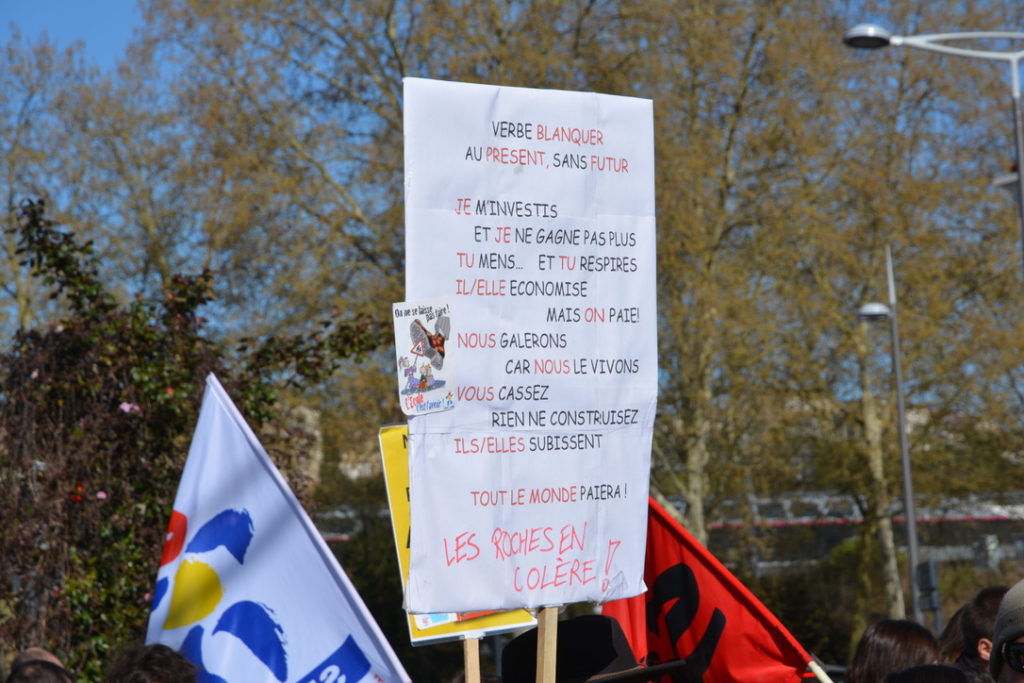 VERBE BLANQUER
AU PRESENT, SANS FUTUR
JE M'INVESTIS
ET JE NE GAGNE PAS PLUS
TU MENS... ET TU RESPIRES
IL/ELLE ECONOMISE
MAIS ON PAIE!
NOUS GALERONS
CAR NOUS LE VIVONS
VOUS CASSEZ
RIEN NE CONSTRUISEZ
ILS/ELLES SUBISSENT
TOUT LE MONDE PAIERA !
LES ROCHES EN
COLÈRE !
On ne se laisse
pas faire !
l'Ecole
c'est l'avenir !